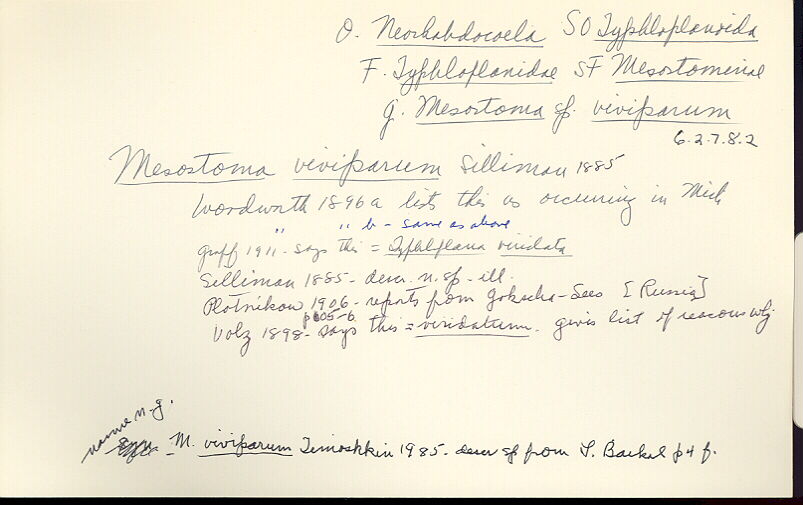 O. Neorhabdocoela SO Typhloplanoida
F. Typhloplanidae SF Mesostominae
g. Mesostoma sp. viviparum
6.2.7.8.2
Mesostoma viviparum Silliman 1885
Woodworth 1896a lists this as occurring in Mich
" " b - same as above
Graff 1911 - says this = Typhloplana viridata
Silliman 1885 - descr. n. sp. - ill.
Plotnikow 1906 - reports from Goktscha-Sees [Russia]
p105-6
Volz 1898 - says this = viridatum. gives list of reasons why
name n.g.
M. viviparum Timoshkin 1985 - descr sp from L. Baikal p4 f.